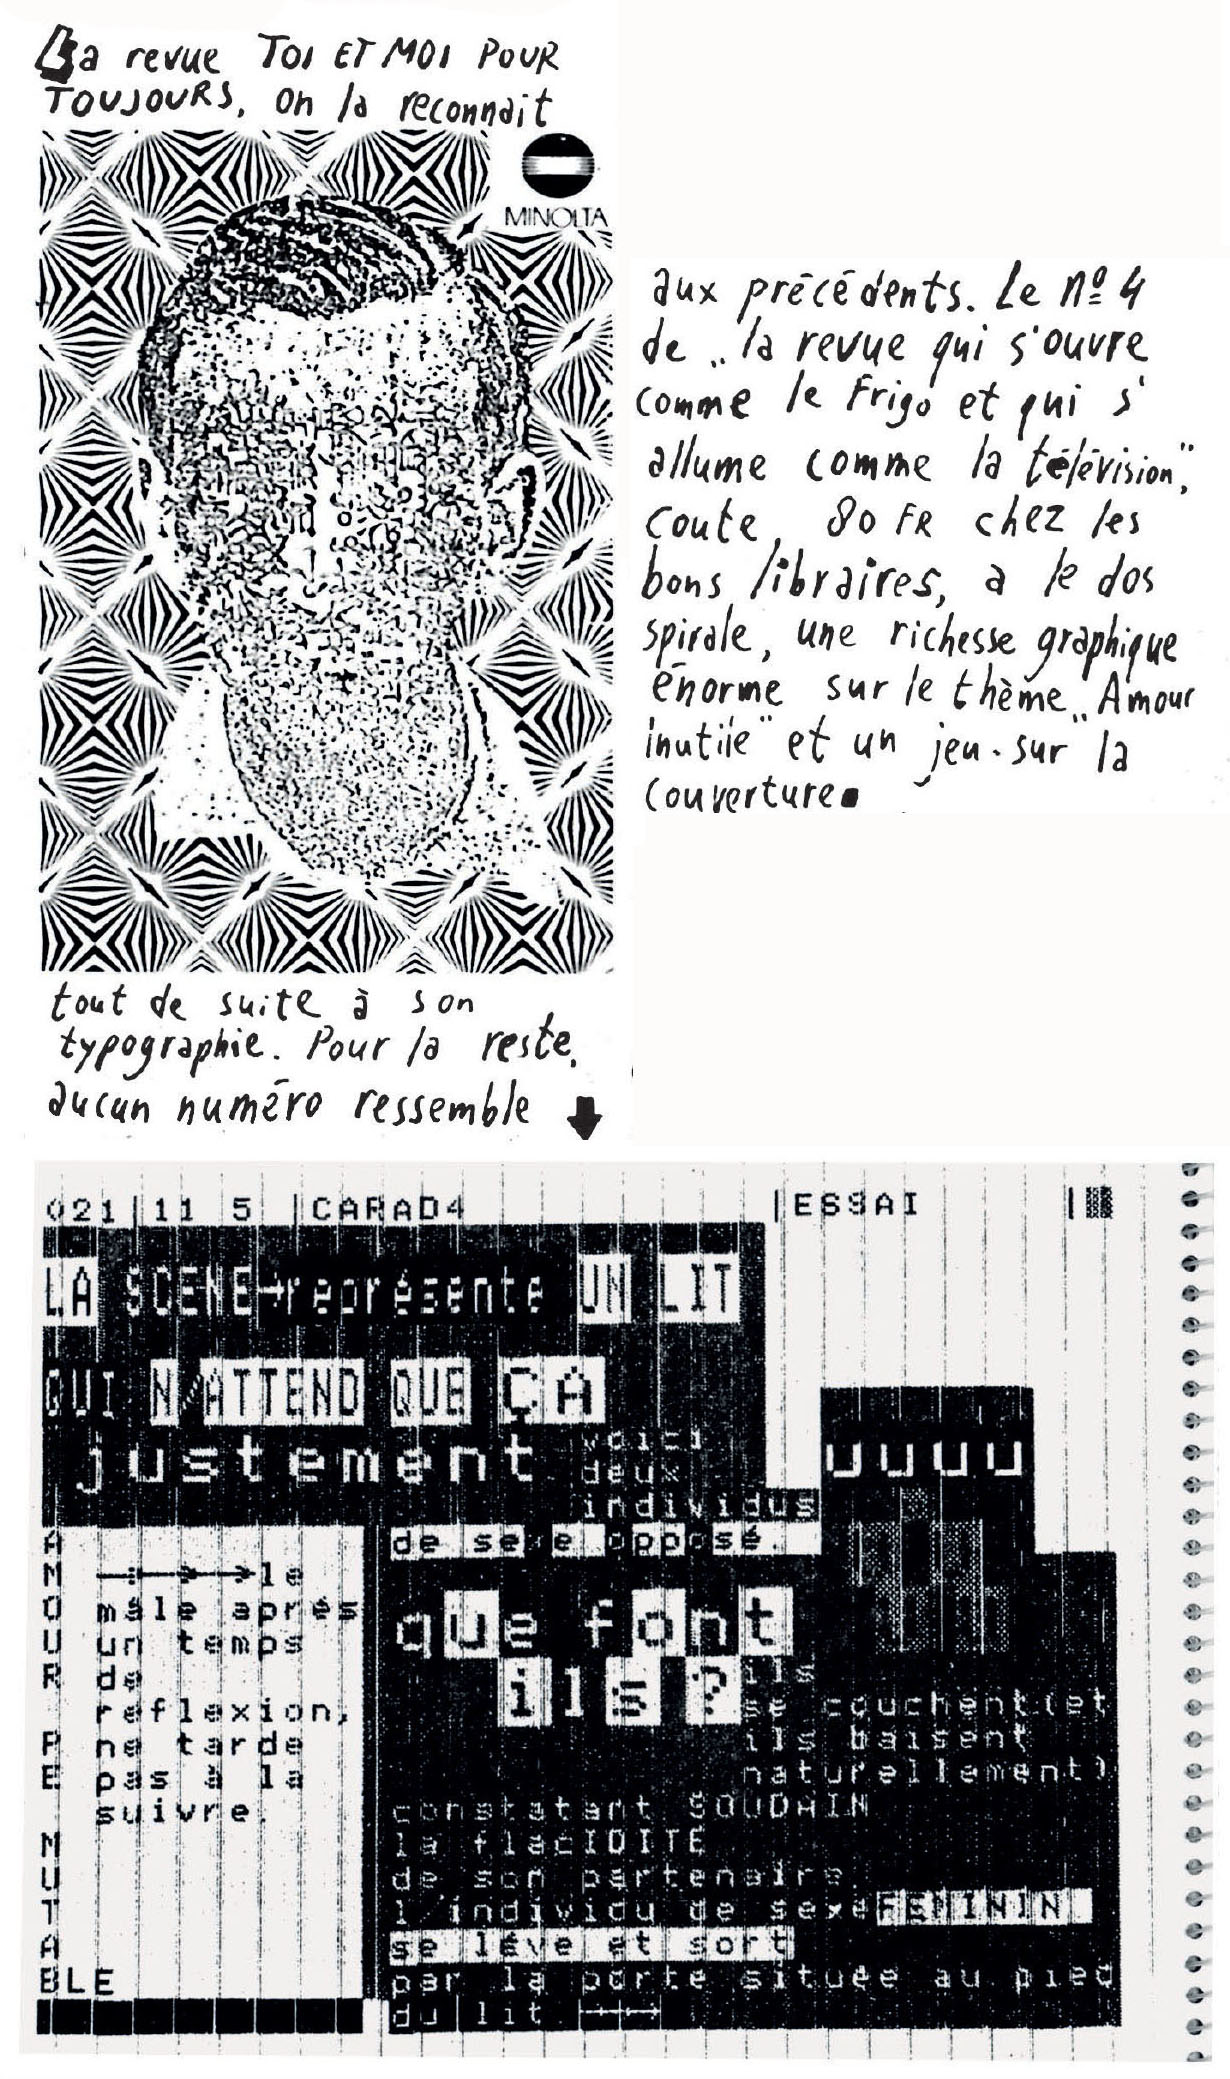 La revue TOI ET MOI POUR
TOUJOURS, on la reconnait
MINOLTA
tout de suite à son
typographie. Pour la reste,
aucun numéro ressemble
aux précédents. Le nº 4
de „la revue qui s'ouvre
comme le Frigo et qui s'
allume comme la télévision",
coute, 80 FR chez les
bons libraires, a le dos
spirale, une richesse graphique
énorme sur le thème „Amour
inutile" et un jeu. sur la
couverture.
021|11 5 |CARAD4 |ESSAI
LA SCENE→représente UN LIT
QUI N'ATTEND QUE ÇA
justement
voici
deux
individus
de sexe opposé.
uuuu
que font
ils?
ils
se couchent(et
ils baisent
naturellement)
constatant SOUDAIN
la flacIDITE
de son partenaire
l'individu de sexe FEMININ
se lève et sort
par la porte située au pied
du lit
AMOUR PE MUTABLE
le
mâle après
un temps
de
reflexion,
ne tarde
pas à la
suivre.